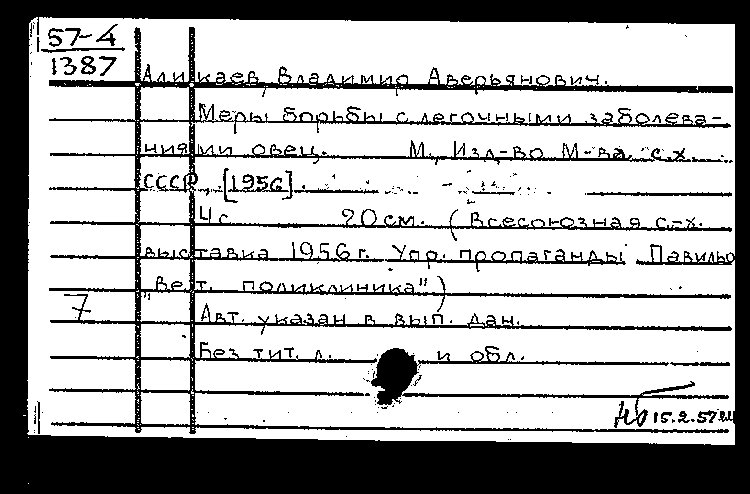 57-4
1387
Аликаев, Владимир Аверьянович.
Меры борьбы с легочными заболева-
ниями овец. М., Изд-во М-ва с.х.
СССР, [1956].
4 с 20 см. (Всесоюзная с.-х.
выставка 1956 г. Упр. пропаганды Павильо
"Вет. поликлиника")
7
Авт. указан в вып. дан.
Без тит. л. и обл.
15.2.57